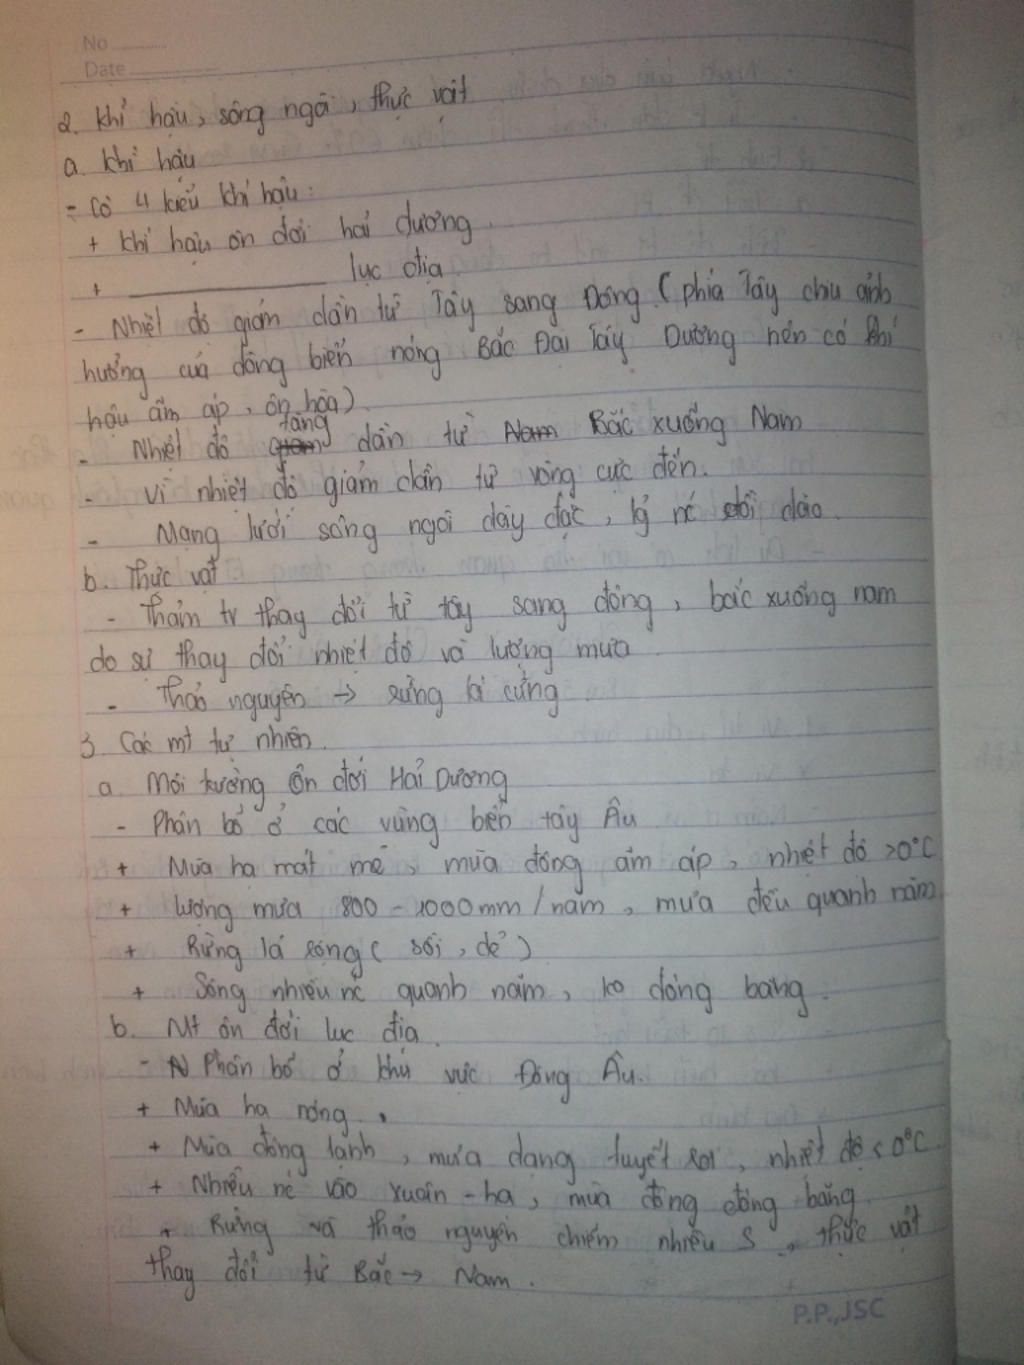 No
Date
2. Khí hậu, sông ngòi, thực vật
a. Khí hậu
- Có 4 kiểu khí hậu:
+ Khí hậu ôn đới hải dương.
+ ____________ lục địa
- Nhiệt độ giảm dần từ Tây sang Đông (phía Tây chịu ảnh
hưởng của dòng biển nóng Bắc Đại Tây Dương nên có khí
hậu ấm áp, ôn hòa)
- Nhiệt độ giảm tăng dần từ Nam Bắc xuống Nam
- Vì nhiệt độ giảm dần từ vòng cực đến.
- Mạng lưới sông ngòi dày đặc, lg nc dồi dào.
b. Thực vật
- Thảm tv thay đổi từ tây sang đông, bắc xuống nam
do sự thay đổi nhiệt độ và lượng mưa.
- Thảo nguyên → rừng lá cứng
3. Các mt tự nhiên.
a. Môi trường Ôn đới Hải Dương
- Phân bố ở các vùng biển tây Âu
+ Mùa hạ mát mẻ, mùa đông ấm áp, nhiệt độ >0°C
+ Lượng mưa 800 - 1000mm/năm, mưa đều quanh năm.
+ Rừng lá rộng (sồi, dẻ)
+ Sông nhiều nc quanh năm, ko đóng băng.
b. Mt ôn đới lục địa.
- N Phân bố ở khu vực Đông Âu.
+ Mùa hạ nóng.
+ Mùa đông lạnh, mưa dạng tuyết rơi, nhiệt độ < 0°C
+ Nhiều nc vào xuân - hạ, mùa đông đóng băng.
+ Rừng và thảo nguyên chiếm nhiều S, thực vật
thay đổi từ Bắc → Nam.
P.P.,JSC